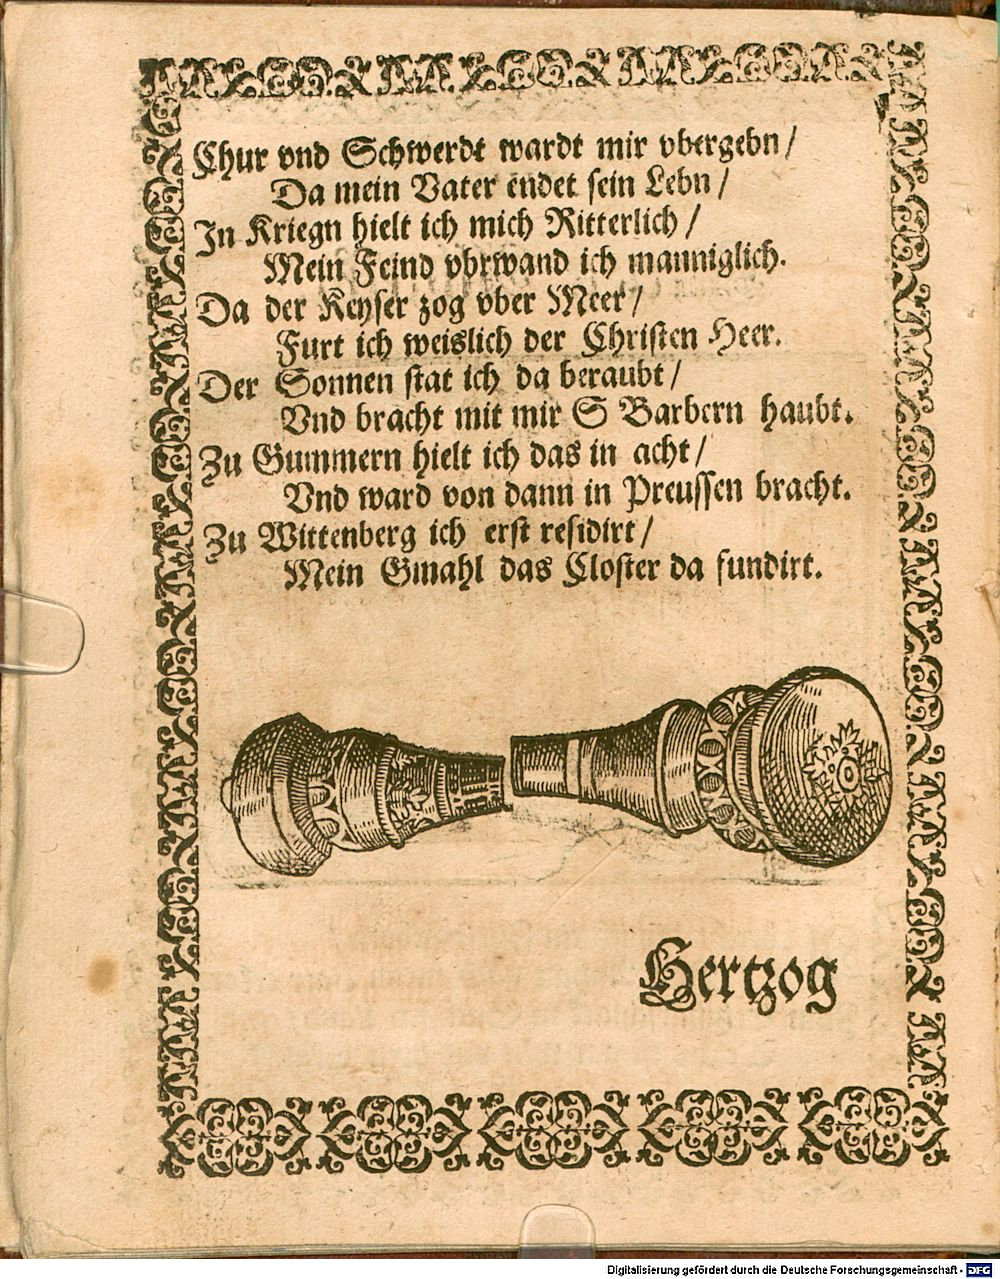 Chur vnd Schwerdt wardt mir vbergebn /
Da mein Vater endet sein Lebn /
In Kriegn hielt ich mich Ritterlich /
Mein Feind vbrwand ich manniglich.
Da der Keyser zog vber Meer /
Furt ich weislich der Christen Heer.
Der Sonnen stat ich da beraubt /
Vnd bracht mit mir S Barbern haubt.
Zu Gummern hielt ich das in acht /
Vnd ward von dann in Preussen bracht.
Zu Wittenberg ich erst residirt /
Mein Gmahl das Closter da fundirt.
Hertzog
Digitalisierung gefördert durch die Deutsche Forschungsgemeinschaft - DFG